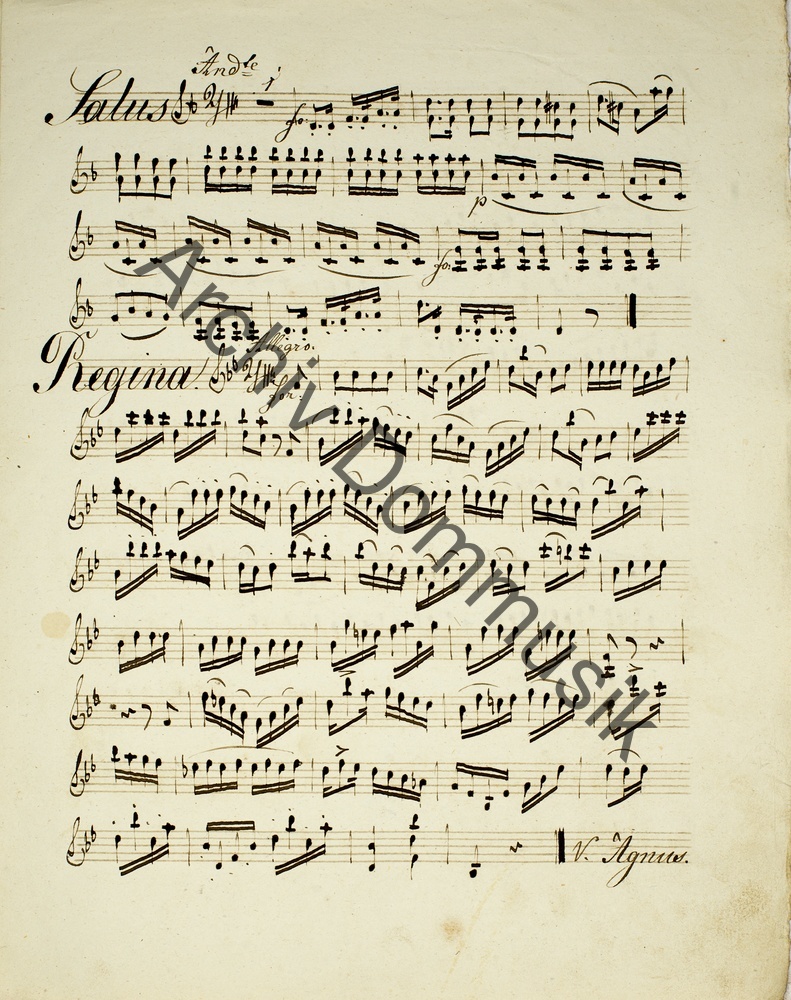 Andte
Salus 1
fo:
p
fo:
Allegro.
Regina
for:
V. Agnus.
Archiv Dommusik